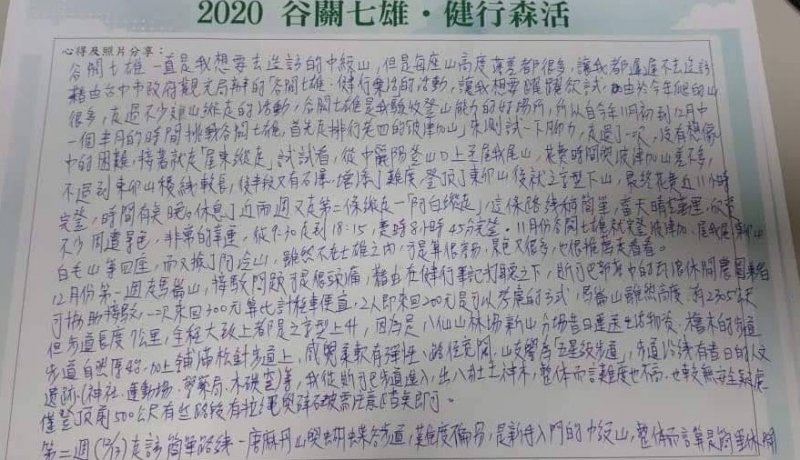 2020 谷關七雄・健行森活
心得及照片分享：
谷關七雄一直是我想要去造訪的中級山，但是每座山高度落差都很多，讓我都遲遲不去造訪
藉由台中市政府觀光局辦的「谷關七雄・健行樂活的活動，讓我想要躍躍欲試，由於今年爬的山
很多，走過不少雜山縱走的活動，谷關七雄是我驗收登山能力的好場所，所以自今年11月初到12月中
一個半月的時間挑戰谷關七雄，首先走排行老四的波津加山，來測試一下腳力，走過了一次，沒有想像
中的困難，接著就走「屋東縱走」試試看，從中龍陽登山口上至屋我尾山，花費時間與波津加山差不多，
不過到東卯山稜線較長，後半段又有石瀑，增添了難度，登頂了東卯山後就之字型下山，最終花費近11小時
完登，時間有點晚。休息了近兩週又走第二條縱走－阿白縱走，這條路線稍簡單，當天晴空萬里，欣賞
不少周遭景色，非常的幸運，從9:30走到18:15，費時8小時45分完登。11月份谷關七雄就完登波津加、屋我尾、東卯山
白毛山等四座，而又撿了阿冷山，雖然不在七雄之內，可是算很夯，景色又很多，也很推薦走看看。
12月份第一週走馬崙山，接駁問題可是很頭痛，藉由在健行筆記尋之下，
可協助接駁，一次來回300元算比計程車便宜，2人即來回200元是可以考慮的方式，馬崙山雖然高度有2305公尺
但步道長度7公里，全程大致上都是之字型上升，因為是八仙山林場新山分場昔日運送生活物資、檜木的步道
步道自然原始，加上鋪滿松針步道上，感覺柔軟有彈性，路徑寬闊，山友譽為「五星級步道」，步道沿線有昔日的人文
遺跡（神社、運動場、醫藥局、水珠壺）等，我從步道進入，出八壯士神木，整體而言難度也不高，也較無安全疑慮
僅登頂前500公尺有些路段有拉繩與碎石坡需注意踩點即可。
第二週（12/13）走訪簡單路線－唐麻丹山與蝴蝶谷步道，難度不高，是新手入門的中級山，整體而言算是簡單休閒